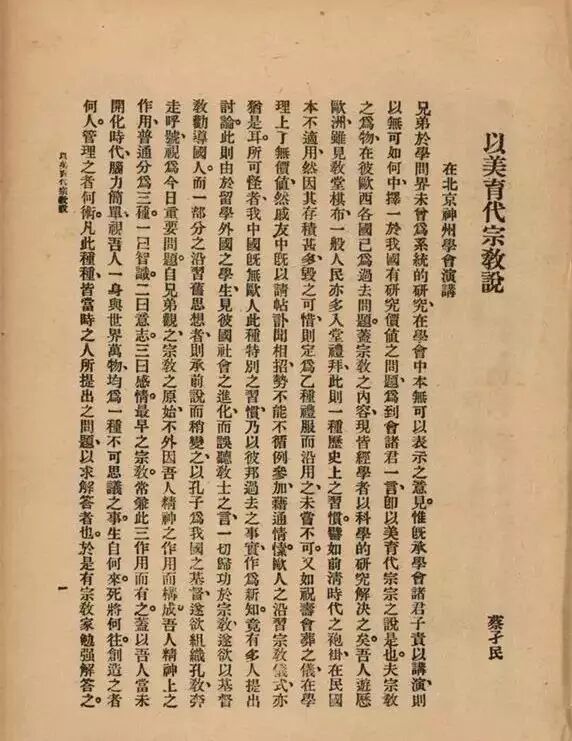 以美育代宗教說
在北京神州學會演講
蔡孑民
兄弟於學問界未曾爲系統的研究、在學會中本無可以表示之意見。惟既承學會諸君子責以講演、則
以無可如何中、擇一於我國有研究價值之問題、爲到會諸君一言、即以美育代宗宗之說是也。夫宗教
之爲物、在彼歐西各國已爲過去問題。蓋宗教之內容、現皆經學者以科學的研究解決之矣。吾人遊歷
歐洲、雖見敎堂棋布、一般人民亦多入堂禮拜、此則一種歷史上之習慣。譬如前淸時代之袍褂、在民國
本不適用、然因其存積甚多、毀之可惜、則定爲乙種禮服而沿用之、未嘗不可。又如祝壽會葬之儀、在學
理上了無價値、然戚友中旣以請帖訃聞相招、勢不能不循例參加、藉通情愫。歐人之沿習宗敎儀式、亦
猶是耳。所可怪者、我中國旣無歐人此種特別之習慣、乃以彼邦過去之事實作爲新知、竟有多人提出
討論。此則由於留學外國之學生、見彼國社會之進化、而誤聽敎士之言、一切歸功於宗敎、遂欲以基督
敎勸導國人。而一部分之沿習舊思想者、則承前說而稍變之、以孔子爲我國之基督、遂欲組織孔敎、奔
走呼號、視爲今日重要問題。自兄弟觀之、宗敎之原始、不外因吾人精神之作用而構成。吾人精神上之
作用、普通分爲三種、一曰智識、二曰意志、三曰感情。最早之宗敎、常兼此三作用而有之。蓋以吾人當未
開化時代、腦力簡單、視吾人一身與世界萬物、均爲一種不可思議之事。生自何來、死將何往、創造之者
何人、管理之者何術、凡此種種、皆當時之人所提出之問題、以求解答者也。於是有宗敎家勉强解答之。
以美育代宗敎說
一